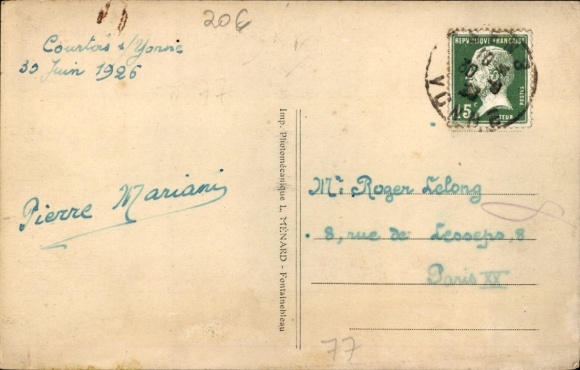 20€
Courtois s/Yonne
30 Juin 1926
Pierre Mariani
Imp. Photomécanique L. MÉNARD - Fontainebleau
REPUBLIQUE FRANÇAISE
15c
POSTES
Mr Roger Lelong
8, rue de Lesseps, 8
Paris XX
77